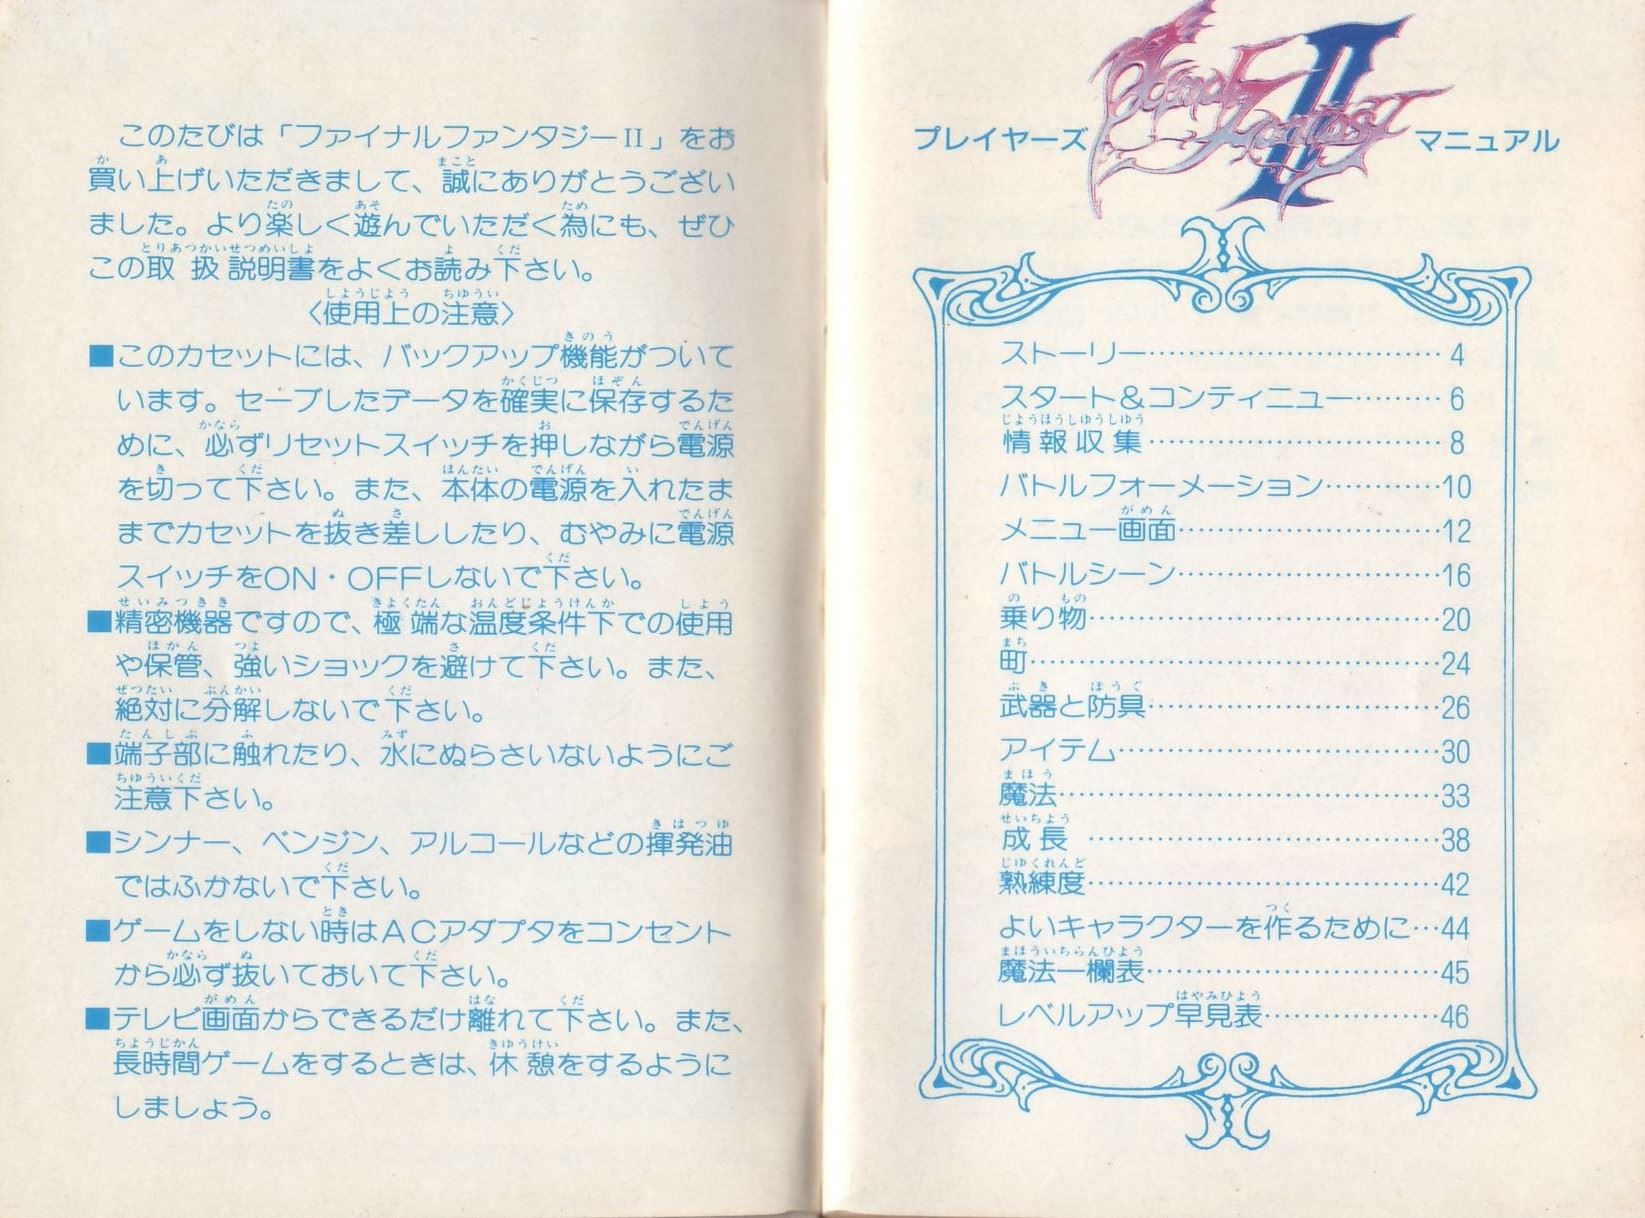 このたびは「ファイナルファンタジーII」をお
買い上げいただきまして、誠にありがとうござい
ました。より楽しく遊んでいただく為にも、ぜひ
この取扱説明書をよくお読み下さい。
〈使用上の注意〉
■このカセットには、バックアップ機能がついて
います。セーブしたデータを確実に保存するた
めに、必ずリセットスイッチを押しながら電源
を切って下さい。また、本体の電源を入れたま
までカセットを抜き差ししたり、むやみに電源
スイッチをON・OFFしないで下さい。
■精密機器ですので、極端な温度条件下での使用
や保管、強いショックを避けて下さい。また、
絶対に分解しないで下さい。
■端子部に触れたり、水にぬらさいないようにご
注意下さい。
■シンナー、ベンジン、アルコールなどの揮発油
ではふかないで下さい。
■ゲームをしない時はACアダプタをコンセント
から必ず抜いておいて下さい。
■テレビ画面からできるだけ離れて下さい。また、
長時間ゲームをするときは、休憩をするように
しましょう。
プレイヤーズ Final Fantasy II マニュアル
ストーリー…………………………4
スタート&コンティニュー………6
情報収集…………………………8
バトルフォーメーション…………10
メニュー画面………………………12
バトルシーン………………………16
乗り物………………………………20
町……………………………………24
武器と防具…………………………26
アイテム……………………………30
魔法…………………………………33
成長…………………………………38
熟練度………………………………42
よいキャラクターを作るために…44
魔法一欄表…………………………45
レベルアップ早見表………………46